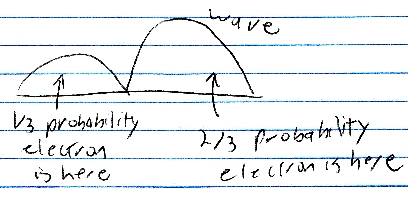 wave
1/3 probability
electron
is here
2/3 probability
electron is here